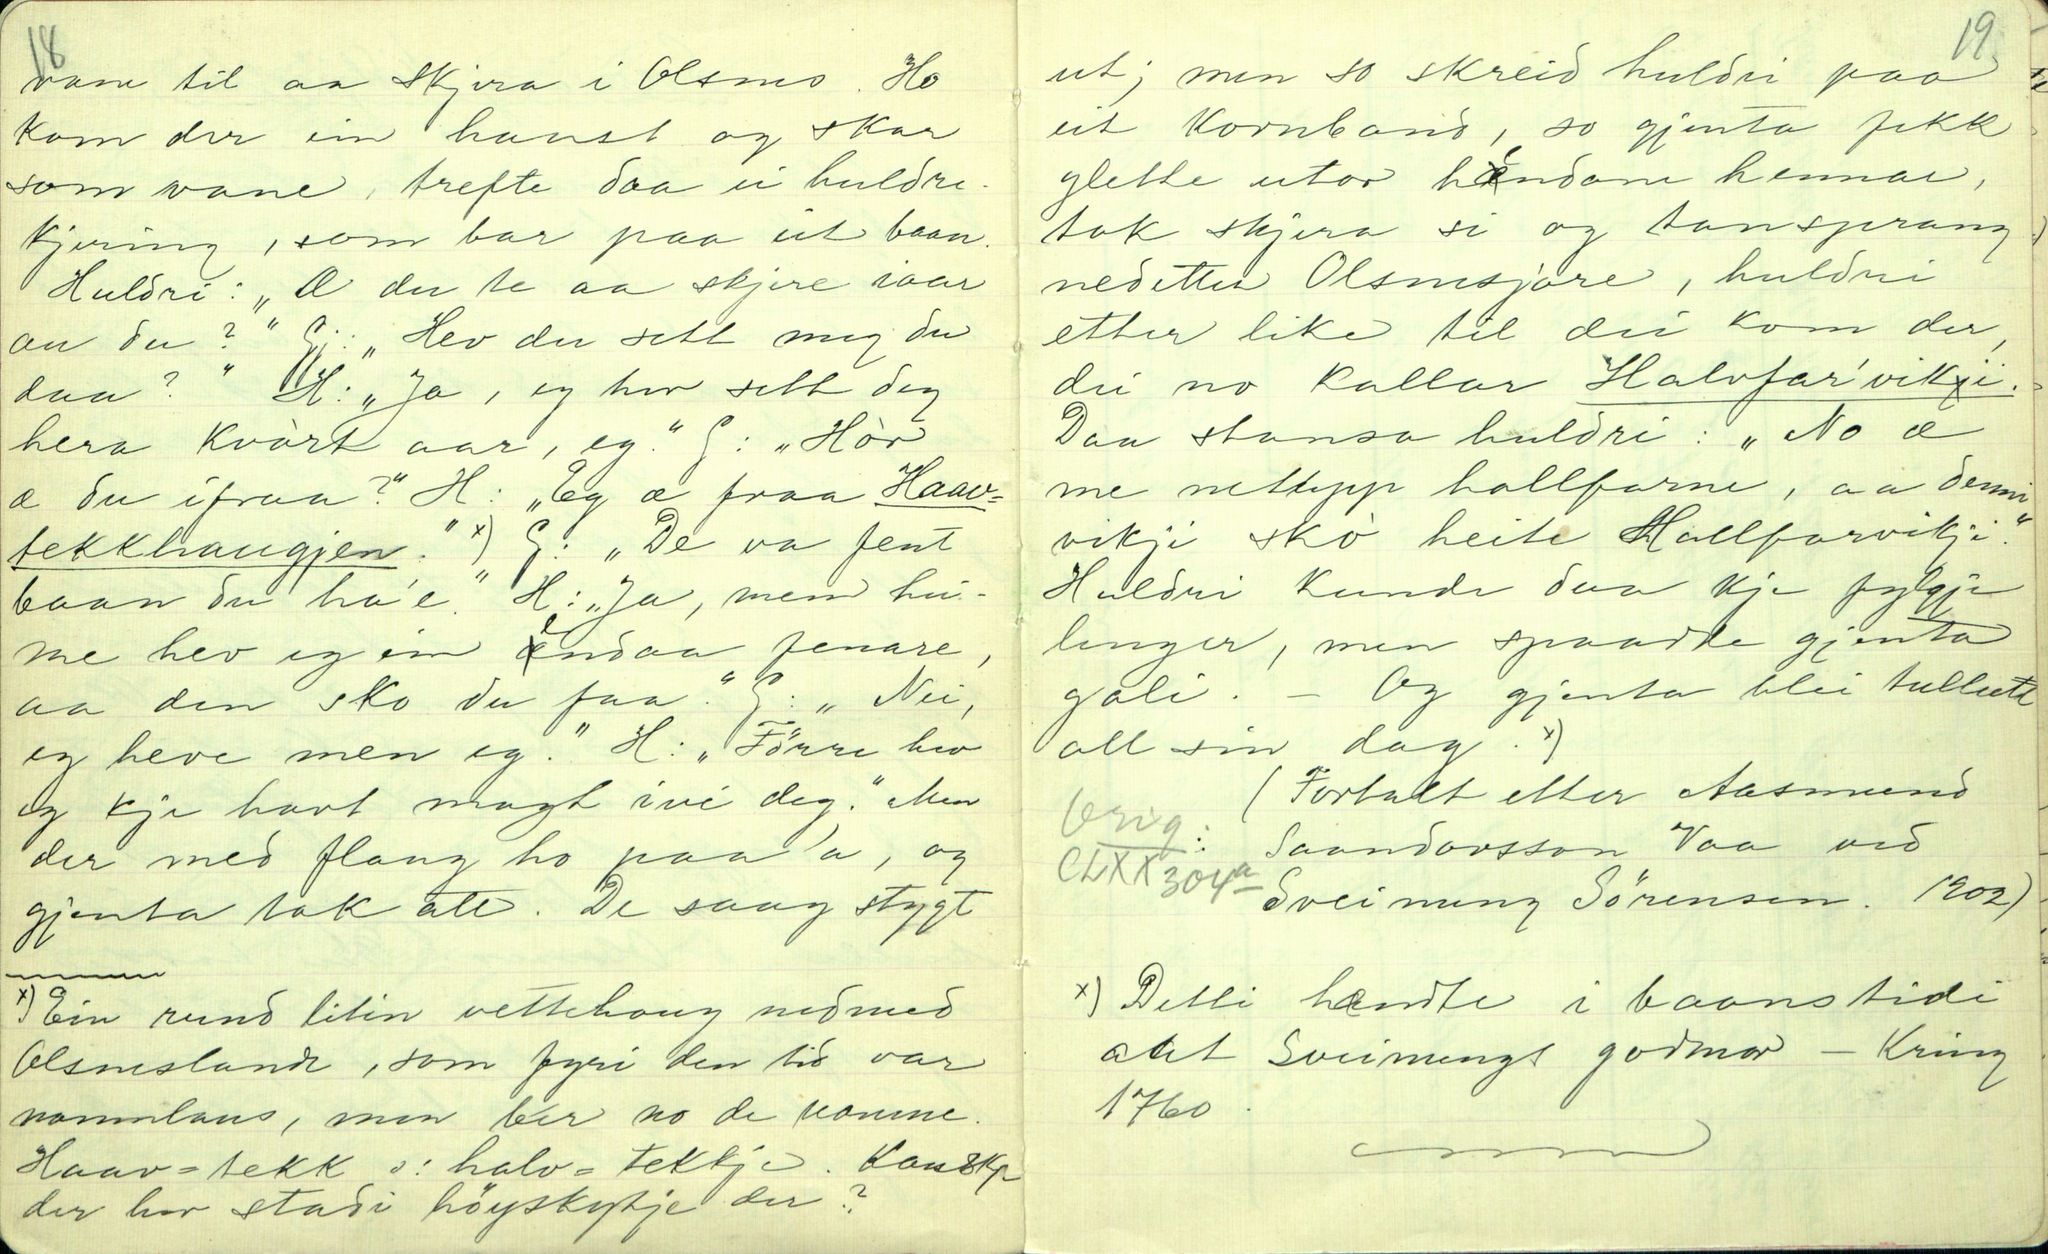 18
vane til aa skjera i Olsmo. Ho
kom der ein haust og skar
som vane, trefte daa ei huldre-
kjering, som bar paa eit baan.
Huldri: „Æ du te aa skjere iaar
au du?" Gj: „Hev du sett meg du
daa?" H: „Ja, eg hev sett deg
hera kvàrt aar, eg." G: „Hòr
æ du ifraa?" H: „Eg æ fraa Haav=
tekkhaugjen." x) G: „De va fent
baan du ha'e." H: „Ja, mem hei-
me hev eg ein endaa fenare,
aa den sko du faa." G: „Nei,
eg heve men eg." H: „Førre hev
eg kje havt magt ivi deg." Men
der med flaug ho paa 'a, og
gjenta tok att. De saag stygt
x) Ein rund litin vettehaug nedmed
Olsneslandi, som fyri den tid var
namnlaus, men ber no de namne.
Haav=tekk ɔ: halv=tekkje. Kanskje
der hev stadi höyskykje der?
19
ut; men so skreid huldri paa
eit kornband, so gjenta fekk
glette utor hendane hennar,
tok skjera si og tansprang
nedetter Olsnesjøre, huldri
etter like til dei kom der,
dei no kallar Halvfar'vikji.
Daa stansa huldri: „No æ
me nettupp hallfarne, aa denni
vikji sko heite Hallfarvikji."
Huldri kunde daa kje fylgje
lenger, men spaadde gjenta
gali. — Og gjenta blei tullutt
all sin dag. x)
(Fortalt etter Aasmund
Saandarsson Vaa ved
Sveinung Sørensen. 1902)
Orig:
CLXX 304a
x) Detti hændte i baanstidi
aat Sveinungs godmor — kring
1760.